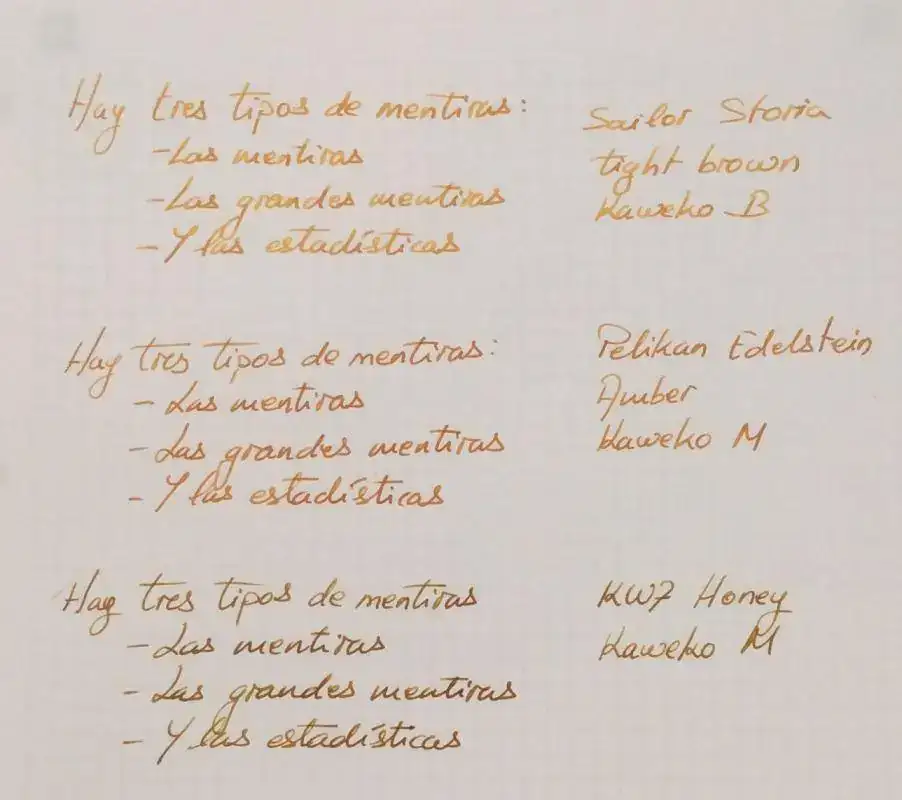 Hay tres tipos de mentiras:
-Las mentiras
-Las grandes mentiras
-Y las estadísticas
Sailor Storia
tight brown
Kaweko B
Hay tres tipos de mentiras:
- Las mentiras
- Las grandes mentiras
- Y las estadísticas
Pelikan Edelstein
Amber
Kaweko M
Hay tres tipos de mentiras
- Las mentiras
- Las grandes mentiras
- Y las estadísticas
KWZ Honey
Kaweko M